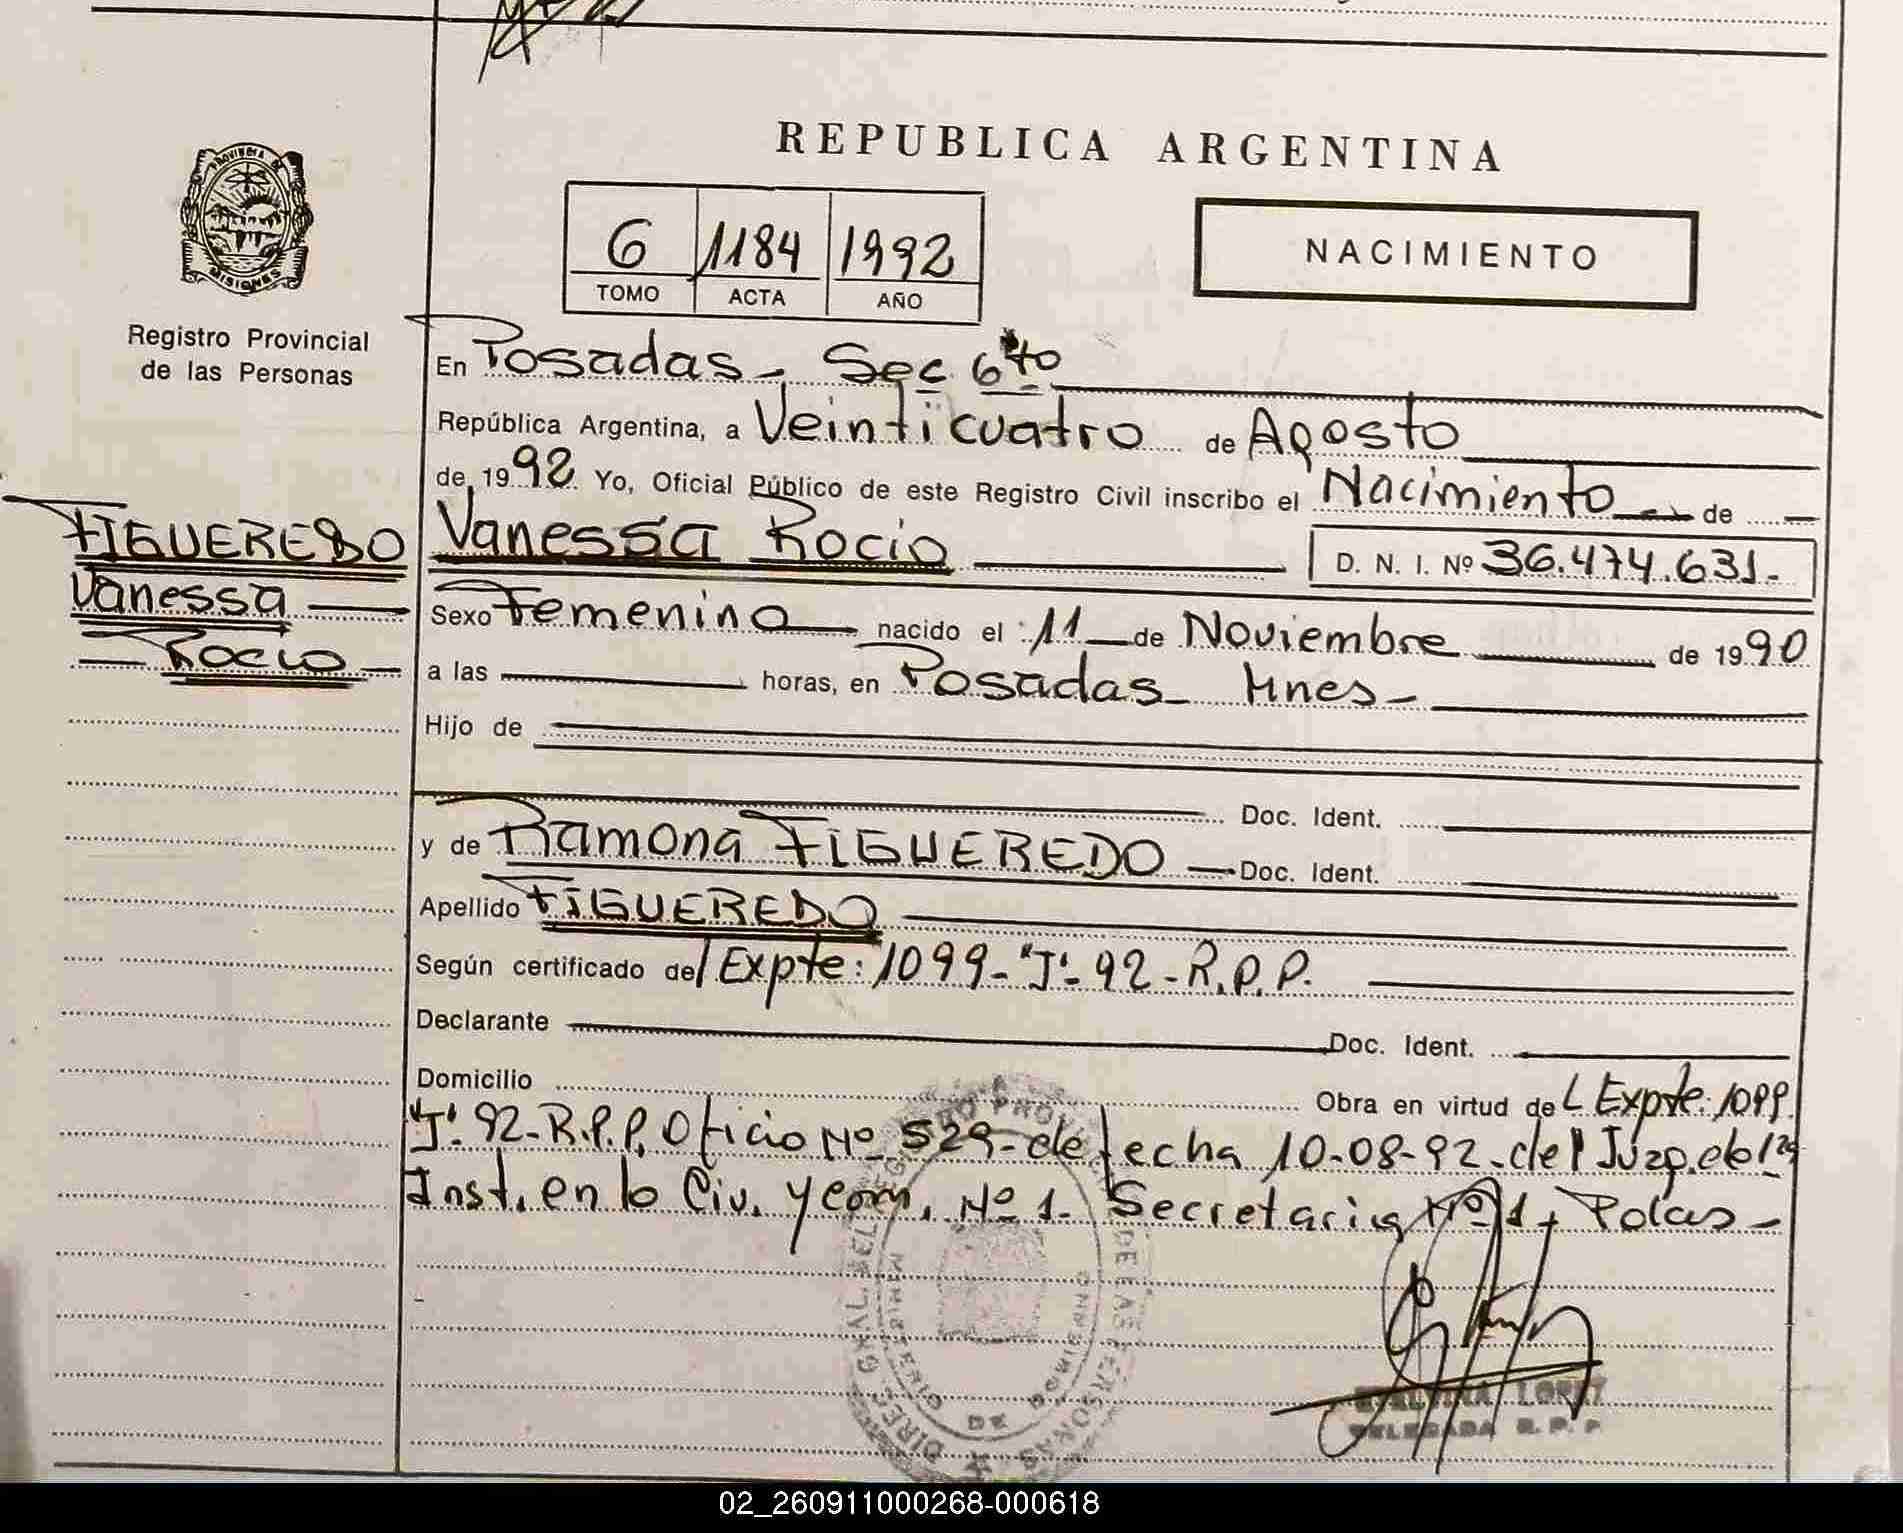 REPUBLICA ARGENTINA
PROVINCIA DE MISIONES
Registro Provincial
de las Personas
6 1184 1992
TOMO ACTA AÑO
NACIMIENTO
En Posadas - Sec 6to
República Argentina, a Veinticuatro de Agosto
de 1992 Yo, Oficial Público de este Registro Civil inscribo el Nacimiento de
FIGUEREDO
Vanessa
Rocio
Vanessa Rocio D. N. I. Nº 36.474.631.-
Sexo Femenino nacido el 11 de Noviembre de 1990
a las horas, en Posadas - Mnes -
Hijo de
Doc. Ident.
y de Ramona FIGUEREDO Doc. Ident.
Apellido FIGUEREDO
Según certificado del Expte: 1099-"J"-92-R.P.P.
Declarante Doc. Ident.
Domicilio Obra en virtud del Expte: 1099.
"J"-92-R.P.P. Oficio Nº 529-de fecha 10-08-92-del Juzg. de 1ra
Inst. en lo Civ. y com. Nº 1- Secretaria Nº 1, Pdas-
DIREC. GRAL. REGISTRO PROVINCIAL DE LAS PERSONAS
MINISTERIO DE GOBIERNO
LOPEZ
DELEGADA R. P. P.
02_260911000268-000618